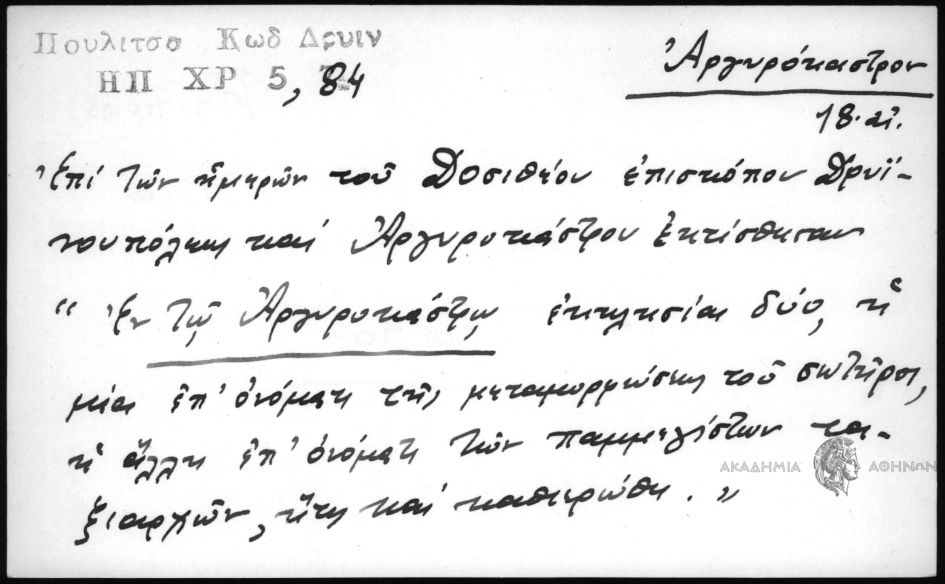 Πουλιτσα Κωδ Δρυιν
ΗΠ ΧΡ 5, 84
Ἀργυρόκαστρον
18. αἰ.
Ἐπί τῶν ἡμερῶν τοῦ Δοσιθέου ἐπισκόπου Δρυϊ-
νουπόλεως καί Ἀργυροκάστρου ἐκτίσθησαν
“ Ἐν τῷ Ἀργυροκάστρῳ ἐκκλησίαι δύο, ἡ
μία ἐπ' ὀνόματι τῆς μεταμορφώσεως τοῦ σωτῆρος,
ἡ ἄλλη ἐπ' ὀνόματι τῶν παμμεγίστων τα-
ξιαρχῶν, ἥτις καί καθιερώθη. ”
ΑΚΑΔΗΜΙΑ ΑΘΗΝΩΝ